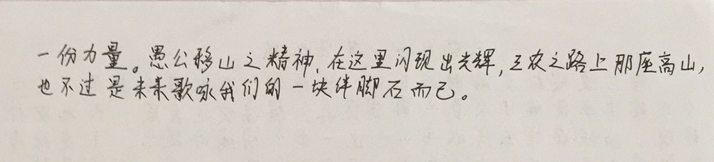 一份力量。愚公移山之精神，在这里闪现出光辉，三农之路上那座高山，
也不过是未来歌咏我们的一块绊脚石而已。